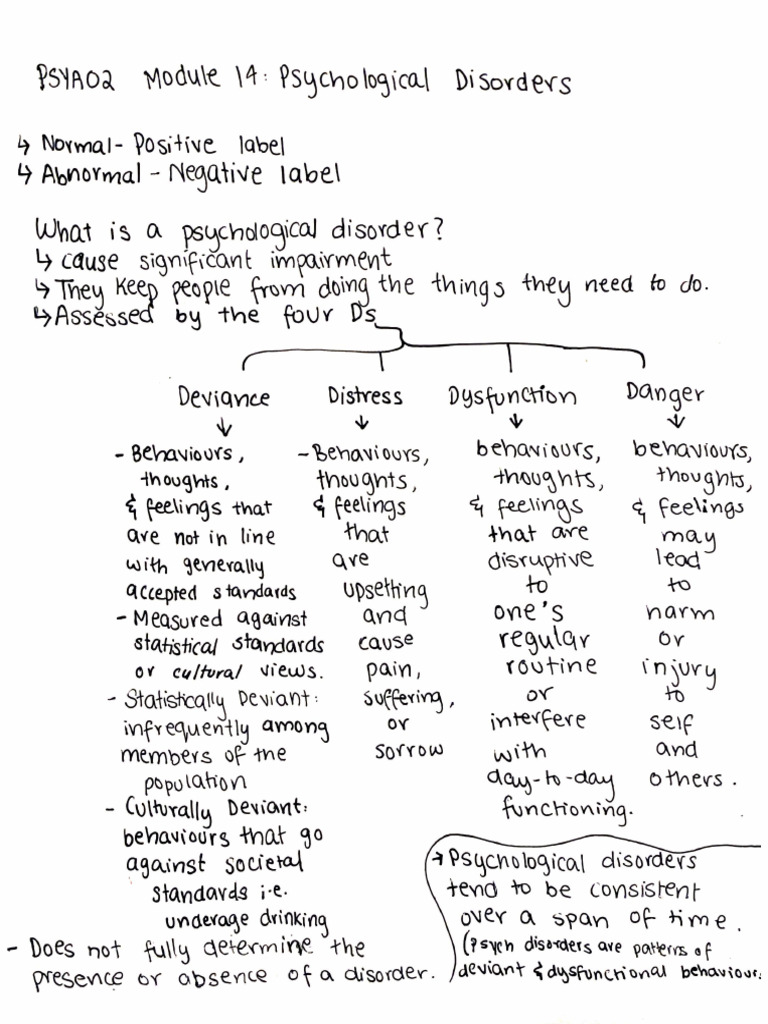 PSYA02 Module 14: Psychological Disorders
↳ Normal - Positive label
↳ Abnormal - Negative label
What is a psychological disorder?
↳ cause significant impairment
↳ They keep people from doing the things they need to do.
↳ Assessed by the four Ds
Deviance
- Behaviours,
thoughts,
& feelings that
are not in line
with generally
accepted standards
- Measured against
statistical standards
or cultural views.
- Statistically Deviant:
infrequently among
members of the
population
- Culturally Deviant:
behaviours that go
against societal
standards i.e.
underage drinking
- Does not fully determine the
presence or absence of a disorder.
Distress
- Behaviours,
thoughts,
& feelings
that
are
upsetting
and
cause
pain,
suffering,
or
sorrow
Dysfunction
behaviours,
thoughts,
& feelings
that are
disruptive
to
one's
regular
routine
or
interfere
with
day-to-day
functioning.
Danger
behaviours,
thoughts,
& feelings
may
lead
to
harm
or
injury
to
self
and
others.
→ Psychological disorders
tend to be consistent
over a span of time.
(Psych disorders are patterns of
deviant & dysfunctional behaviour